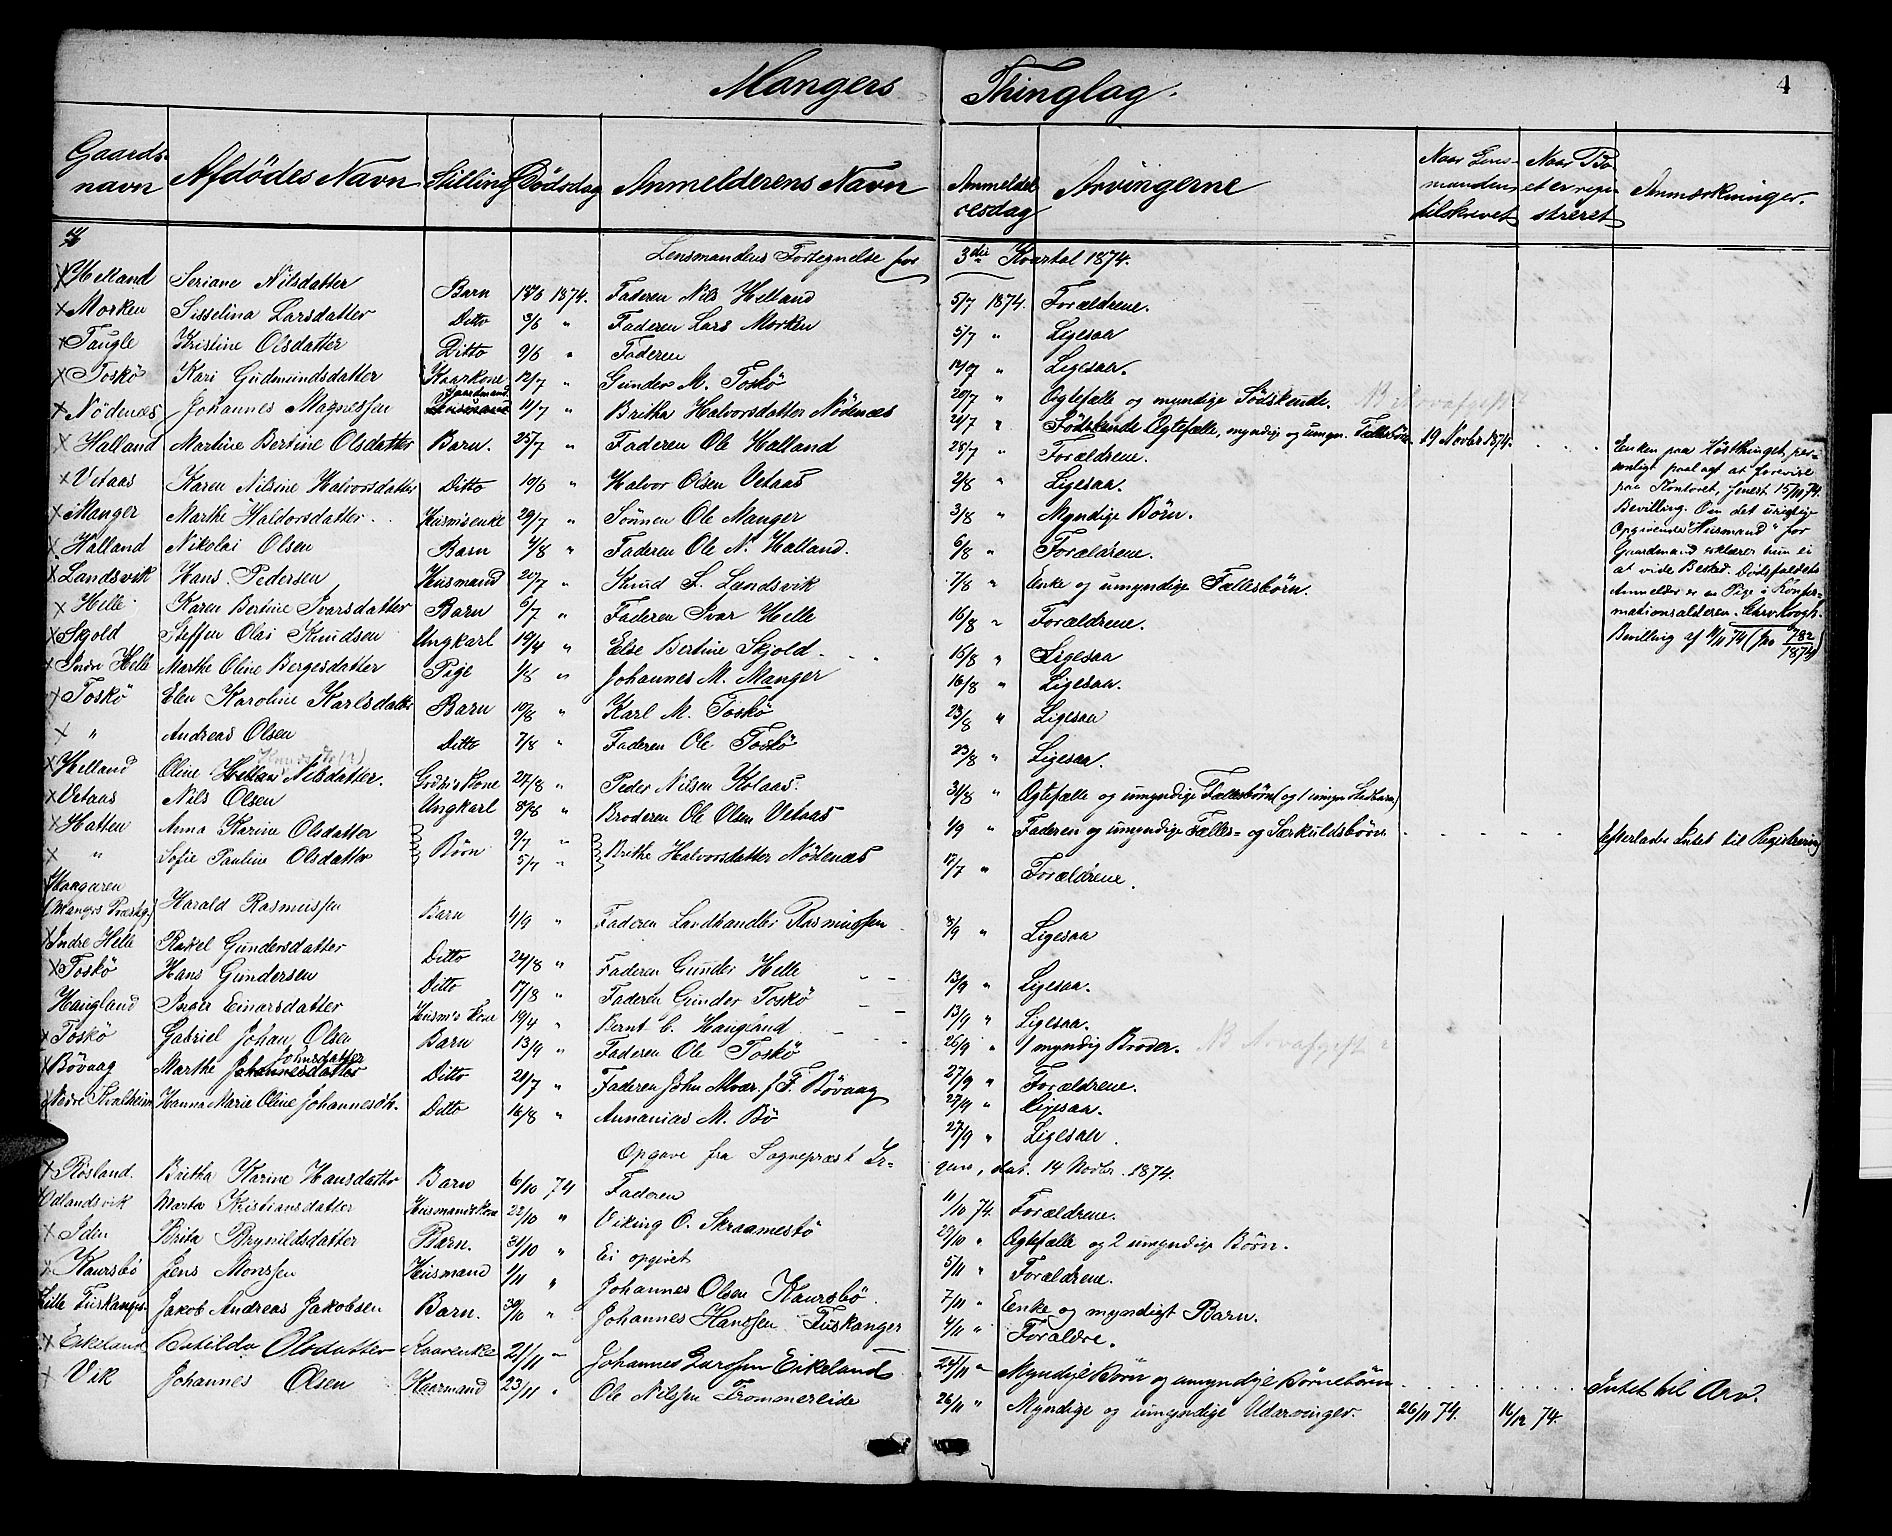 Mangers Thinglag.
4
Gaards-navn | Afdödes Navn | Stilling | Dödsdag | Anmelderens Navn | Anmeldelsesdag | Arvingerne | Naar Lensmanden tilskrevet | Naar Bo et er registreret | Anmærkninger.
Lensmandens Fortegnelse for 3die Kvartal 1874.
x Helland | Seriane Nilsdatter | Barn | 1874. | Faderen Nils Helland | 5/7 1874. | Forældrene.
x Morken | Sisselina Larsdatter | Ditto | 3/6 " | Faderen Lars Morken | 5/7 " | Ligesaa
x Taugle | Kristine Olsdatter | Ditto | 9/6 " | Faderen | 12/7 " | Ligesaa.
x Toskö | Kari Gudmundsdatter | Kaarkone | 12/7 " | Gunder M. Toskö | 20/7 " | Ogtefælle og myndige Södskende. | NB Arvafgift
x Nödenæs | Johannes Magnessen | Gaardmand | 11/7 " | Britha Halvorsdatter Nödenæs | 21/7 " | Ogtefælle, myndig og umyn. Fællesbörn | 19 Novbr 1874.
x Halland | Martine Bertine Olsdatter | Barn. | 25/7 " | Faderen Ole Halland | 28/7 " | Forældrene.
x Vetaas | Karen Nilsine Halvorsdatter | Ditto | 19/6 " | Halvor Olsen Vetaas | 2/8 " | Ligesaa.
x Manger | Marthe Haldorsdatter | Husm's enke | 29/7 " | Sönnen Ole Manger | 3/8 " | Myndige Börn.
x Halland | Nikolai Olsen | Barn | 4/8 " | Faderen Ole N. Halland. | 6/8 " | Forældrene.
x Landsvik | Hans Pedersen | Husmand | 20/7 " | Knud L. Landsvik | 7/8 " | Enke og umyndige Fællesbörn.
x Helle | Karen Bertine Ivarsdatter | Barn | 5/7 " | Faderen Ivar Helle | 16/8 " | Forældrene.
x Skjold | Steffen Olai Knudsen | Ungkarl | 19/4 " | Else Bertine Skjold | 16/8 " | Ligesaa
x Indre Helle | Marthe Oline Bergesdatter | Pige | 1/8 " | Johannes M. Manger | 16/8 " | Ligesaa.
x Toskö | Elen Karoline Karlsdatter | Barn | 10/8 " | Karl M. Toskö | 23/8 " | Ligesaa
x " | Andreas Olsen | Ditto | 7/8 " | Faderen Ole Toskö | 23/8 " | Ligesaa.
x Helland | Oline Nilsdatter. | Kone | 27/8 " | Peder Nilsen Kolaas. | 31/8 " | Ogtefælle og umyndige Fællesbörn (og 1 umyn Stedbarn)
x Vetaas | Nils Olsen | Ungkarl | " | Broderen Ole Olsen Vetaas | 1/9 " | Faderen og umyndige Fælles- og Særkuldsbörn. | Efterlader Intet til Registrering
x Hatten | Anna Karine Olsdatter | Börn | 9/7 " | Brithe Halvorsdatter Nödenæs | 17/7 " | Forældrene.
x " | Sofie Pauline Olsdatter | 5/7 "
Haagaren (Mangers Præstg.) | Harald Rasmussen | Barn | 4/9 " | Faderen Landhandler Rasmussen | 8/9 " | Ligesaa
x Indre Helle | Rakel Gundersdatter | Ditto | 24/8 " | Faderen Gunder Helle | 13/9 " | Ligesaa.
x Toskö | Hans Gundersen | Ditto | 17/8 " | Faderen Gunder Toskö | 13/9 " | Ligesaa.
Haugland | Inger Einarsdatter | Husm's Kone | 19/4 " | Bernt C. Haugland | 26/9 " | 1 myndig Broder. | NB Arvafgift
x Toskö | Gabriel Johan Olsen | Barn | 13/9 " | Faderen Ole Toskö | 27/9 " | Forældrene.
x Bövaag | Marthe Johannesdatter Johnsdatter | Ditto | 20/7 " | Faderen John Mvær. f. F. Bövaag | 27/9 " | Ligesaa.
x Nedre Kvalheim | Hanna Marie Oline Johannesdtr. | Ditto | 16/8 " | Annanias M. Bö | 27/9 " | Ligesaa.
Opgave fra Sognepræst Irgens, dat. 14 Novbr. 1874.
x Rösland. | Britha Karine Hansdatter | Barn | 6/10 74 | Faderen | 11/10 74. | Forældrene.
Odlandsvik | Marta Kristiansdatter | Husmandskone | 22/10 " | Viking O. Skraamestö | 29/10 " | Ogtefælle og 2 umyndige Börn.
x Iden | Brita Brynildsdatter | Barn. | 31/10 " | Ei opgivet | 5/11 " | Forældrene.
x Kaursbö | Jens Monssen | Husmand | 1/11 " | Johannes Olsen Kaursbö | 7/11 " | Enke og myndigt Barn.
Lille Fuskanger | Jakob Andreas Jakobsen | Barn. | 30/10 " | Johannes Hanssen Fuskanger | 4/11 " | Forældre.
x Eikeland | Batilda Olsdatter | Kaarenke | 21/11 " | Johannes Larssen Eikeland | 24/11 " | Myndige Börn og umyndige Börnebörn | Intet til Arv.
x Vik | Johannes Olsen | Kaarmand | 23/11 " | Ole Nilssen Trommereide | 26/11 " | Myndige og umyndige Udarvinger. | 26/11 74. | 16/12 74.
Enken paa Höstthinget personligt paalagt at forevise paa Kontoret, senest 15/11 74. Bevilling. Om det urigtige Opgivende "Husmand" for Gaardmand erklærer hun ei at vide Besked. Dödsfaldets Anmelder er en Pige i Konfirmationsalderen.
Bevilling af 4/11 74 (No 782/1874)